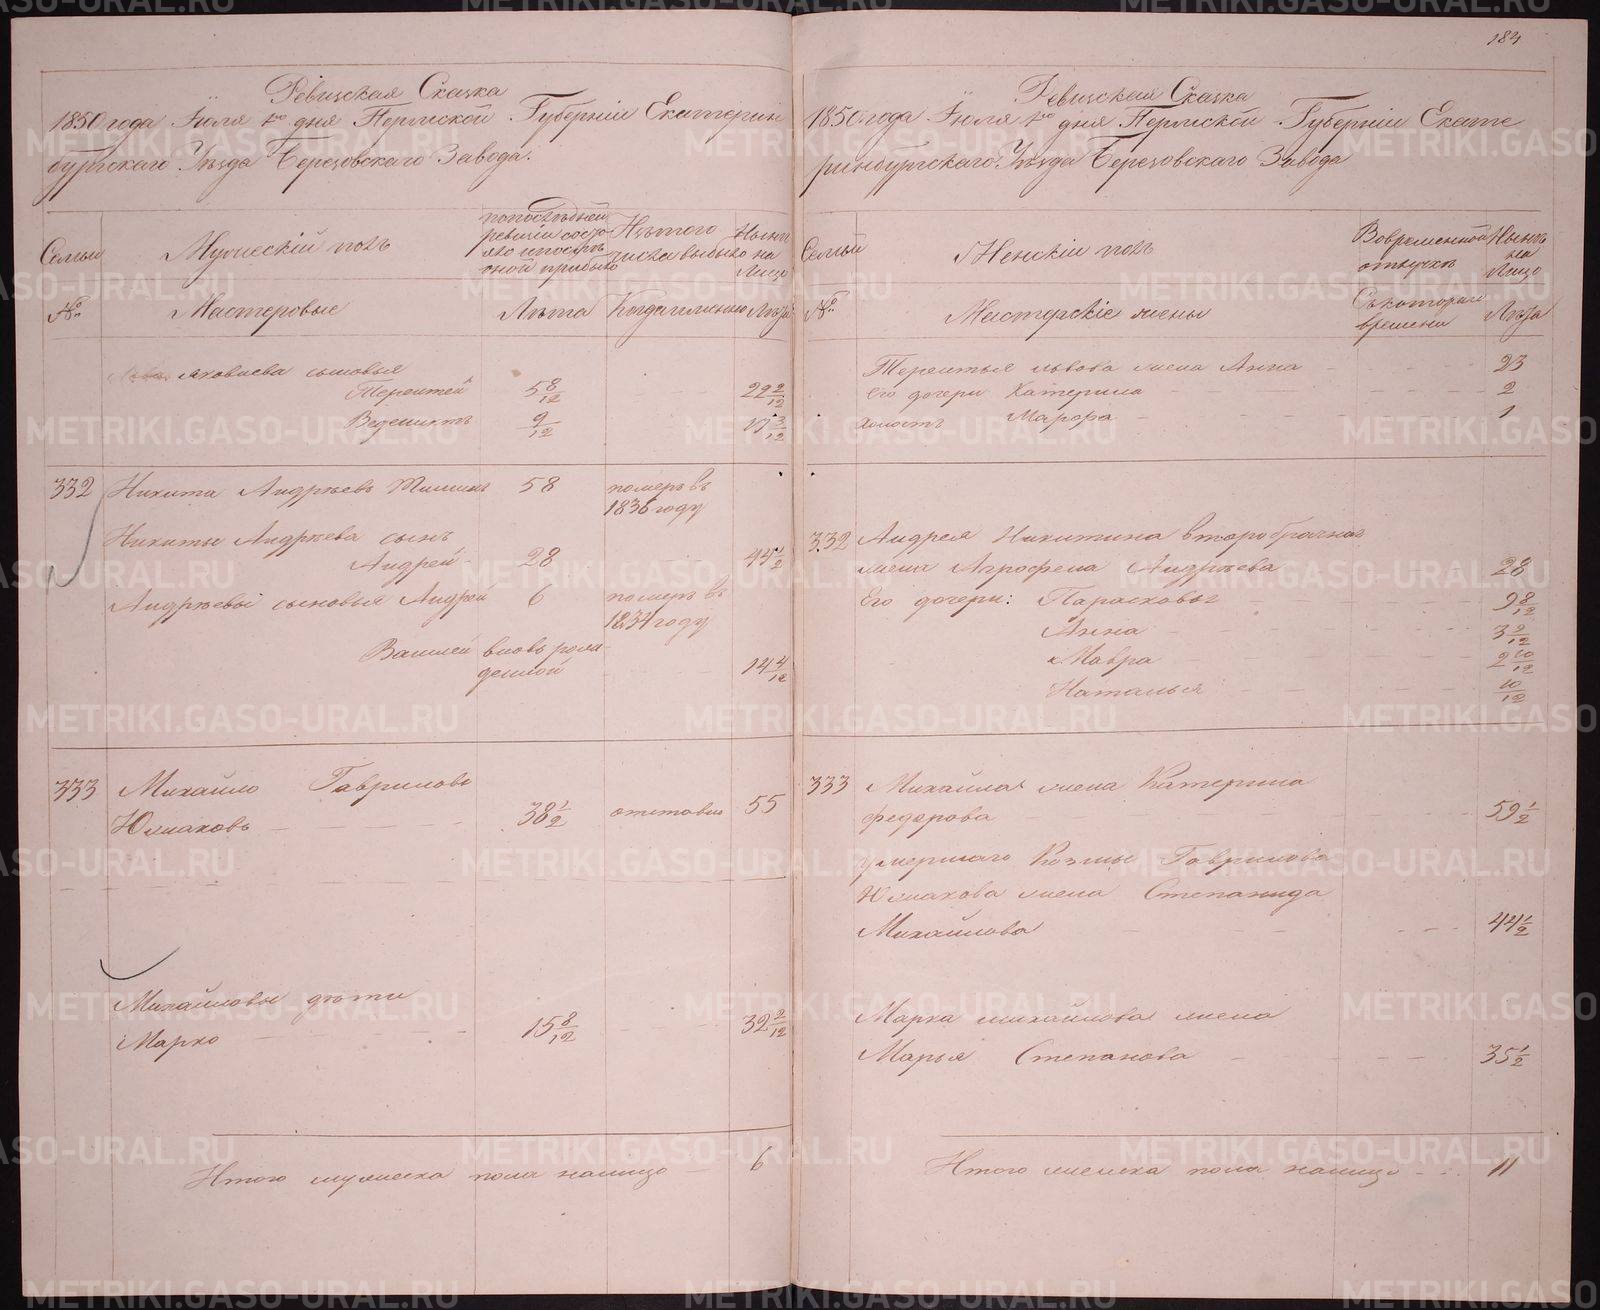 184
Ревизская Сказка
1850 года Іюля 1го дня Пермской Губерніи Екатерин
бургскаго Уѣзда Березовскаго Завода.
Семьи
Мужескій полъ
по последней
ревизіи состо
яло и послѣ
оной прибыло
Изъ того
числа выбыло
Нынѣ
на
Лицо
№
Мастеровые
Лѣта
Когда именно
Лѣта
Яковлева сыновья
Терентей 5 8/12 22 2/12
Веденихтъ 9/12 17 3/12
332 Никита Андрѣевъ 58 померъ въ
1836 году
Никиты Андрѣева сынъ
Андрей 28 44 1/2
Андрѣевы сыновья Андрей 6 померъ въ
1834 году
Василей вновь рож
денной 14 4/12
333 Михайло Гавриловъ
Юшаковъ 38 1/2 55
Михайловы дѣти
Марко 15 8/12 32 2/12
Итого мужеска пола налицо 6
Ревизская Сказка
1850 года Іюля 1го дня Пермской Губерніи Екате
ринбургскаго Уѣзда Березовскаго Завода
Семьи
Женскій полъ
Вовременной
отлучкѣ
Нынѣ
на
Лицо
№
Мастерскіе жены
Съкотораго
времени
Лѣта
Терентья Львова жена Анна 23
Его дочери Катерина 2
Мавра 1
332 Андрея Никитина второбрачная
жена Агрофена Андрѣева 28
Его дочери: Парасковья 9 8/12
Анна 3 2/12
Мавра 2 10/12
Наталья 10/12
333 Михайла жена Катерина
Федорова 59 1/2
умершаго Козмы Гаврилова
Юшакова жена Степанида
Михайлова 44 1/2
Марка Михайлова жена
Марья Степанова 35 1/2
Итого женска пола налицо 11
METRIKI.GASO-URAL.RU